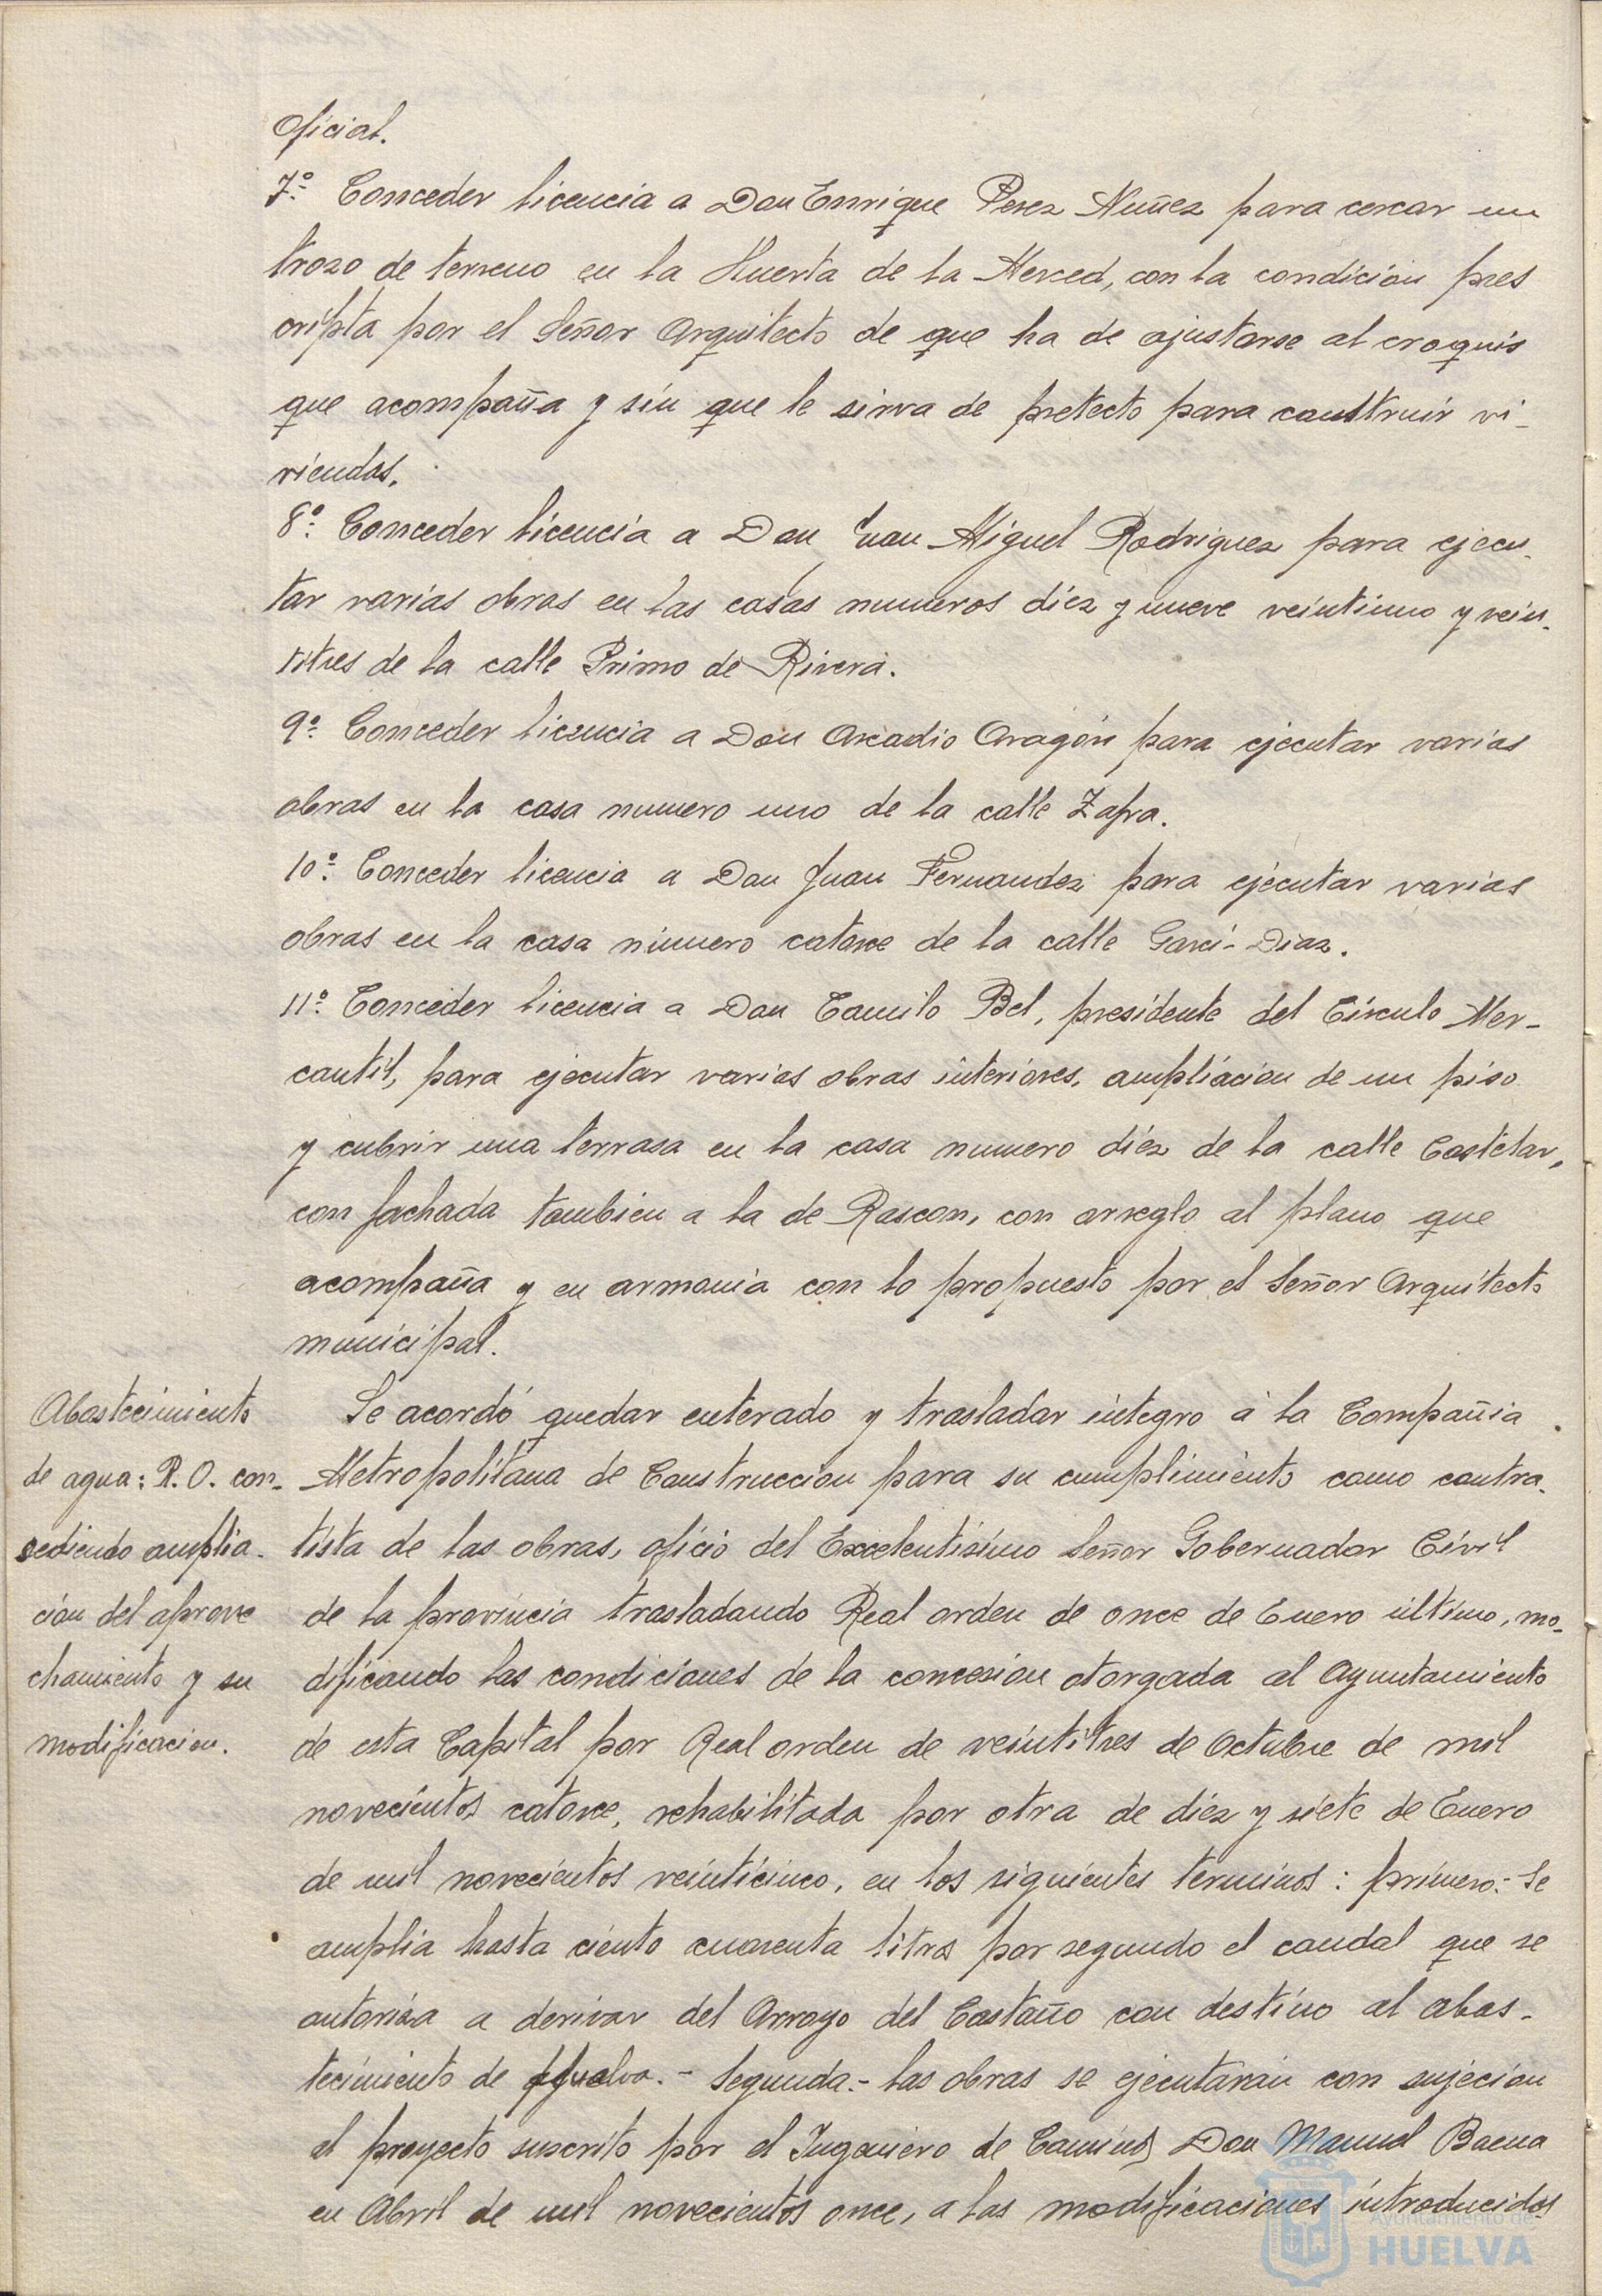 Oficial.
7º Conceder licencia a Don Enrique Perez Nuñez para cercar un
trozo de terreno en la Huerta de la Merced, con la condicion pres
cripta por el Señor Arquitecto de que ha de ajustarse al croquis
que acompaña y sin que le sirva de pretecto para construir vi-
viendas.
8º Conceder licencia a Don Juan Miguel Rodriguez para ejecu-
tar varias obras en las casas numeros diez y nueve veintiuno y vein-
titres de la calle Primo de Rivera.
9º Conceder licencia a Don Arcadio Aragón para ejecutar varias
obras en la casa numero uno de la calle Zafra.
10º Conceder licencia a Don Juan Fernandez para ejecutar varias
obras en la casa número catorce de la calle Garci-Diaz.
11º Conceder licencia a Don Camilo Bel, presidente del Círculo Mer-
cantil, para ejecutar varias obras interiores, ampliacion de un piso
y cubrir una terrasa en la casa numero diez de la calle Castelar,
con fachada tambien a la de Rascon, con arreglo al plano que
acompaña y en armonia con lo propuesto por el Señor Arquitecto
municipal.
Abastecimiento
de agua: R.O. con-
cediendo amplia-
cion del aprove
chamiento y su
modificacion.
Se acordó quedar enterado y trasladar integro á la Compañia
Metropolitana de Construccion para su cumplimiento como contra-
tista de las obras, oficio del Excelentisimo Señor Gobernador Civil
de la provincia trasladando Real orden de once de Enero último, mo-
dificando las condiciones de la concesion otorgada al Ayuntamiento
de esta Capital por Real orden de veintitres de Octubre de mil
novecientos catorce, rehabilitada por otra de diez y siete de Enero
de mil novecientos veinticinco, en los siguientes terminos: primero:- Se
amplia hasta ciento cuarenta litros por segundo el caudal que se
autoriza a derivar del Arroyo del Castaño con destino al abas-
tecimiento de Huelva.- Segunda.- las obras se ejecutarán con sujecion
al proyecto suscrito por el Ingeniero de Caminos Don Manuel Baena
en Abril de mil novecientos once, a las modificaciones introducidas
Ayuntamiento de
HUELVA